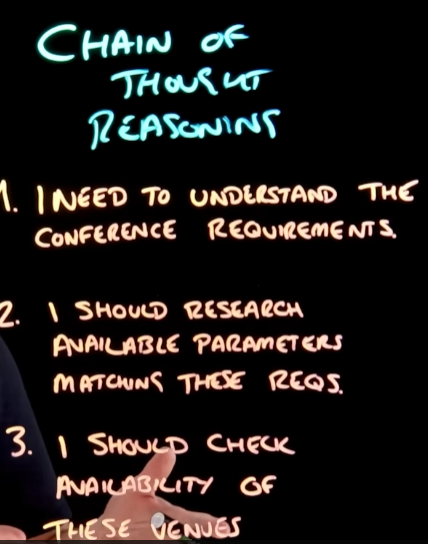 CHAIN OF
THOUGHT
REASONING
1. I NEED TO UNDERSTAND THE
CONFERENCE REQUIREMENTS.
2. I SHOULD RESEARCH
AVAILABLE PARAMETERS
MATCHING THESE REQS.
3. I SHOULD CHECK
AVAILABILITY OF
THESE VENUES